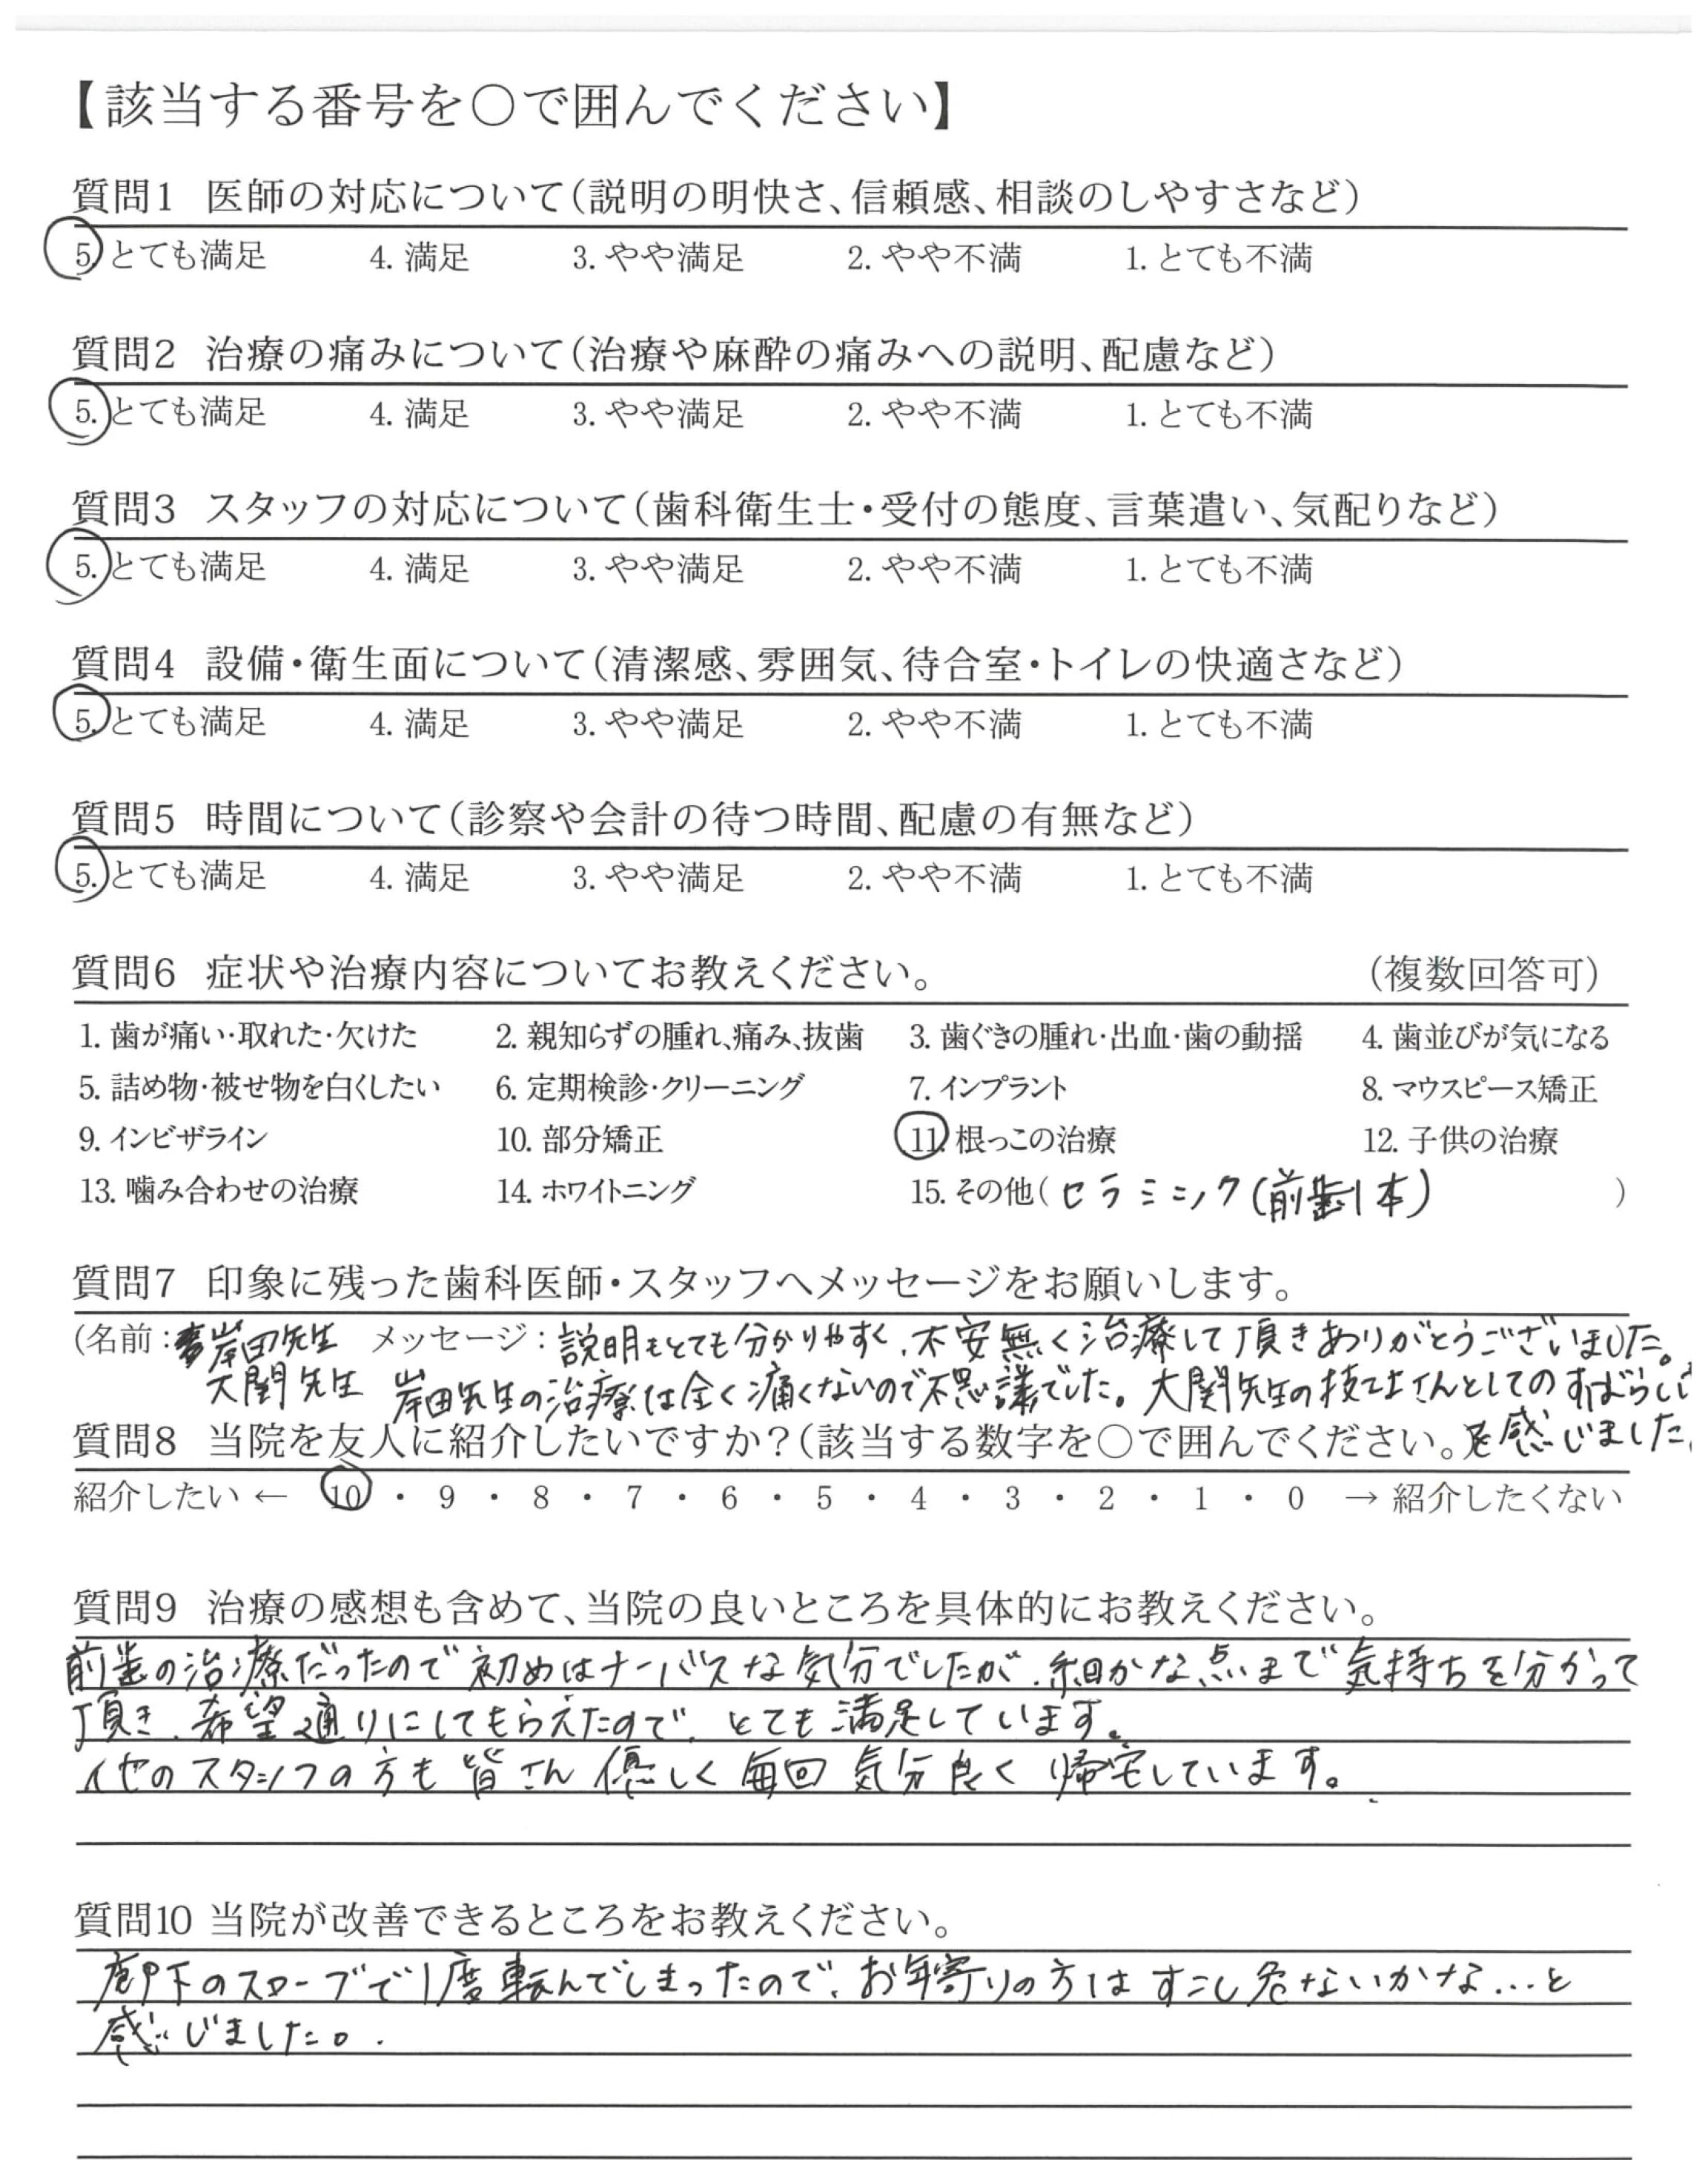 【該当する番号を○で囲んでください】
質問1 医師の対応について(説明の明快さ、信頼感、相談のしやすさなど)
5. とても満足 4. 満足 3. やや満足 2. やや不満 1. とても不満
質問2 治療の痛みについて(治療や麻酔の痛みへの説明、配慮など)
5. とても満足 4. 満足 3. やや満足 2. やや不満 1. とても不満
質問3 スタッフの対応について(歯科衛生士・受付の態度、言葉遣い、気配りなど)
5. とても満足 4. 満足 3. やや満足 2. やや不満 1. とても不満
質問4 設備・衛生面について(清潔感、雰囲気、待合室・トイレの快適さなど)
5. とても満足 4. 満足 3. やや満足 2. やや不満 1. とても不満
質問5 時間について(診察や会計の待つ時間、配慮の有無など)
5. とても満足 4. 満足 3. やや満足 2. やや不満 1. とても不満
質問6 症状や治療内容についてお教えください。 (複数回答可)
1. 歯が痛い・取れた・欠けた 2. 親知らずの腫れ、痛み、抜歯 3. 歯ぐきの腫れ・出血・歯の動揺 4. 歯並びが気になる
5. 詰め物・被せ物を白くしたい 6. 定期検診・クリーニング 7. インプラント 8. マウスピース矯正
9. インビザライン 10. 部分矯正 11. 根っこの治療 12. 子供の治療
13. 噛み合わせの治療 14. ホワイトニング 15. その他( セラミック(前歯1本) )
質問7 印象に残った歯科医師・スタッフへメッセージをお願いします。
(名前: 岸田先生 メッセージ: 説明もとても分かりやすく、不安無く治療して頂きありがとうございました。
大関先生 岸田先生の治療は全く痛くないので不思議でした。大関先生の技工士さんとしてのすばらしさ
質問8 当院を友人に紹介したいですか?(該当する数字を○で囲んでください。 を感じました。
紹介したい ← 10 ・ 9 ・ 8 ・ 7 ・ 6 ・ 5 ・ 4 ・ 3 ・ 2 ・ 1 ・ 0 → 紹介したくない
質問9 治療の感想も含めて、当院の良いところを具体的にお教えください。
前歯の治療だったので初めはナーバスな気分でしたが、細かな点まで気持ちを分かって
頂き、希望通りにしてもらえたので、とても満足しています。
他のスタッフの方も皆さん優しく毎回気分良く帰宅しています。
質問10 当院が改善できるところをお教えください。
廊下のスロープで1度転んでしまったので、お年寄りの方はすこし危ないかな...と
感じました。